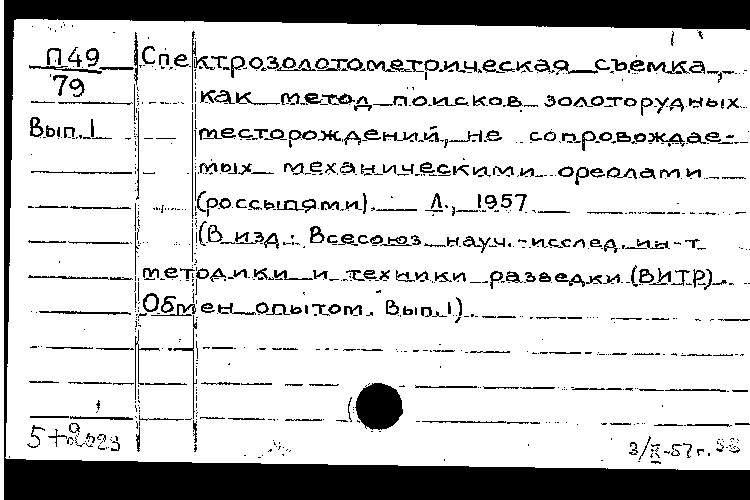 П49 Спектрозолотометрическая съемка,
79 как метод поисков золоторудных
Вып.1 месторождений, не сопровождае-
мых механическими ореолами
(россыпями). Л., 1957
(В изд.: Всесоюз. науч.-исслед. ин-т
методики и техники разведки (ВИТР).
Обмен опытом. Вып.1).
3/IX-57г.